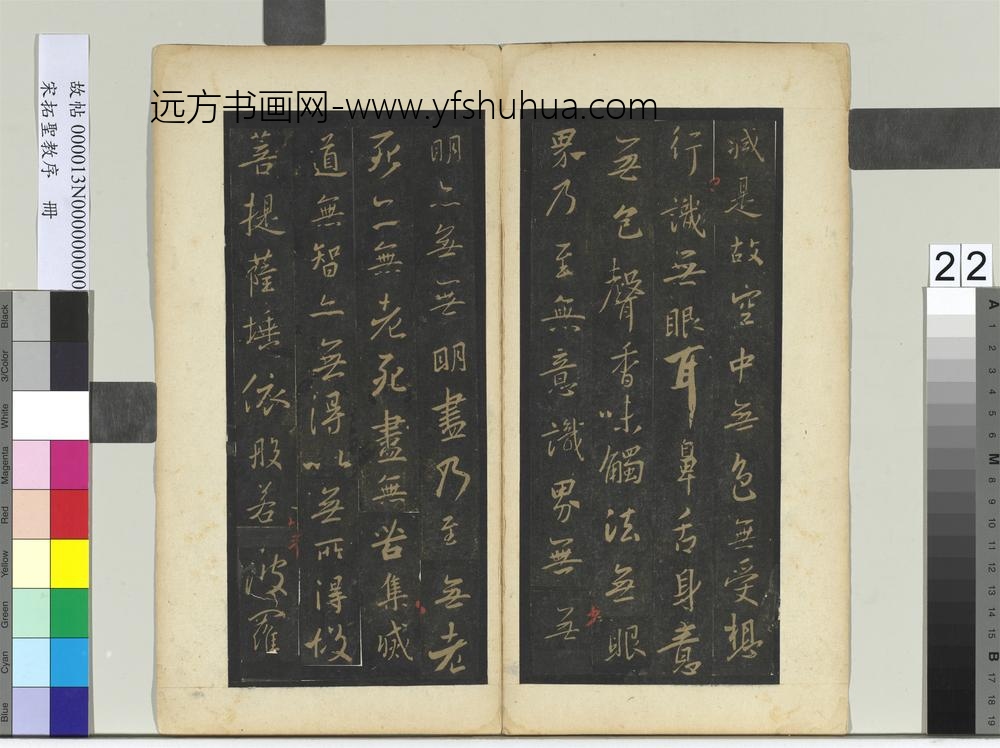 远方书画网-www.yfshuhua.com
減是故空中無色無受想
行識無眼耳鼻舌身意
無色聲香味觸法無眼
界乃至無意識界無無
明亦無無明盡乃至無老
死亦無老死盡無苦集滅
道無智亦無得以無所得故
菩提薩埵依般若波羅
故帖 000013N000000000
宋拓聖教序 冊
22
Black
3/Color
White
Magenta
Red
Yellow
Green
Cyan
Blue
A
1
2
3
4
5
6
M
8
9
10
11
12
13
14
15
B
17
18
19